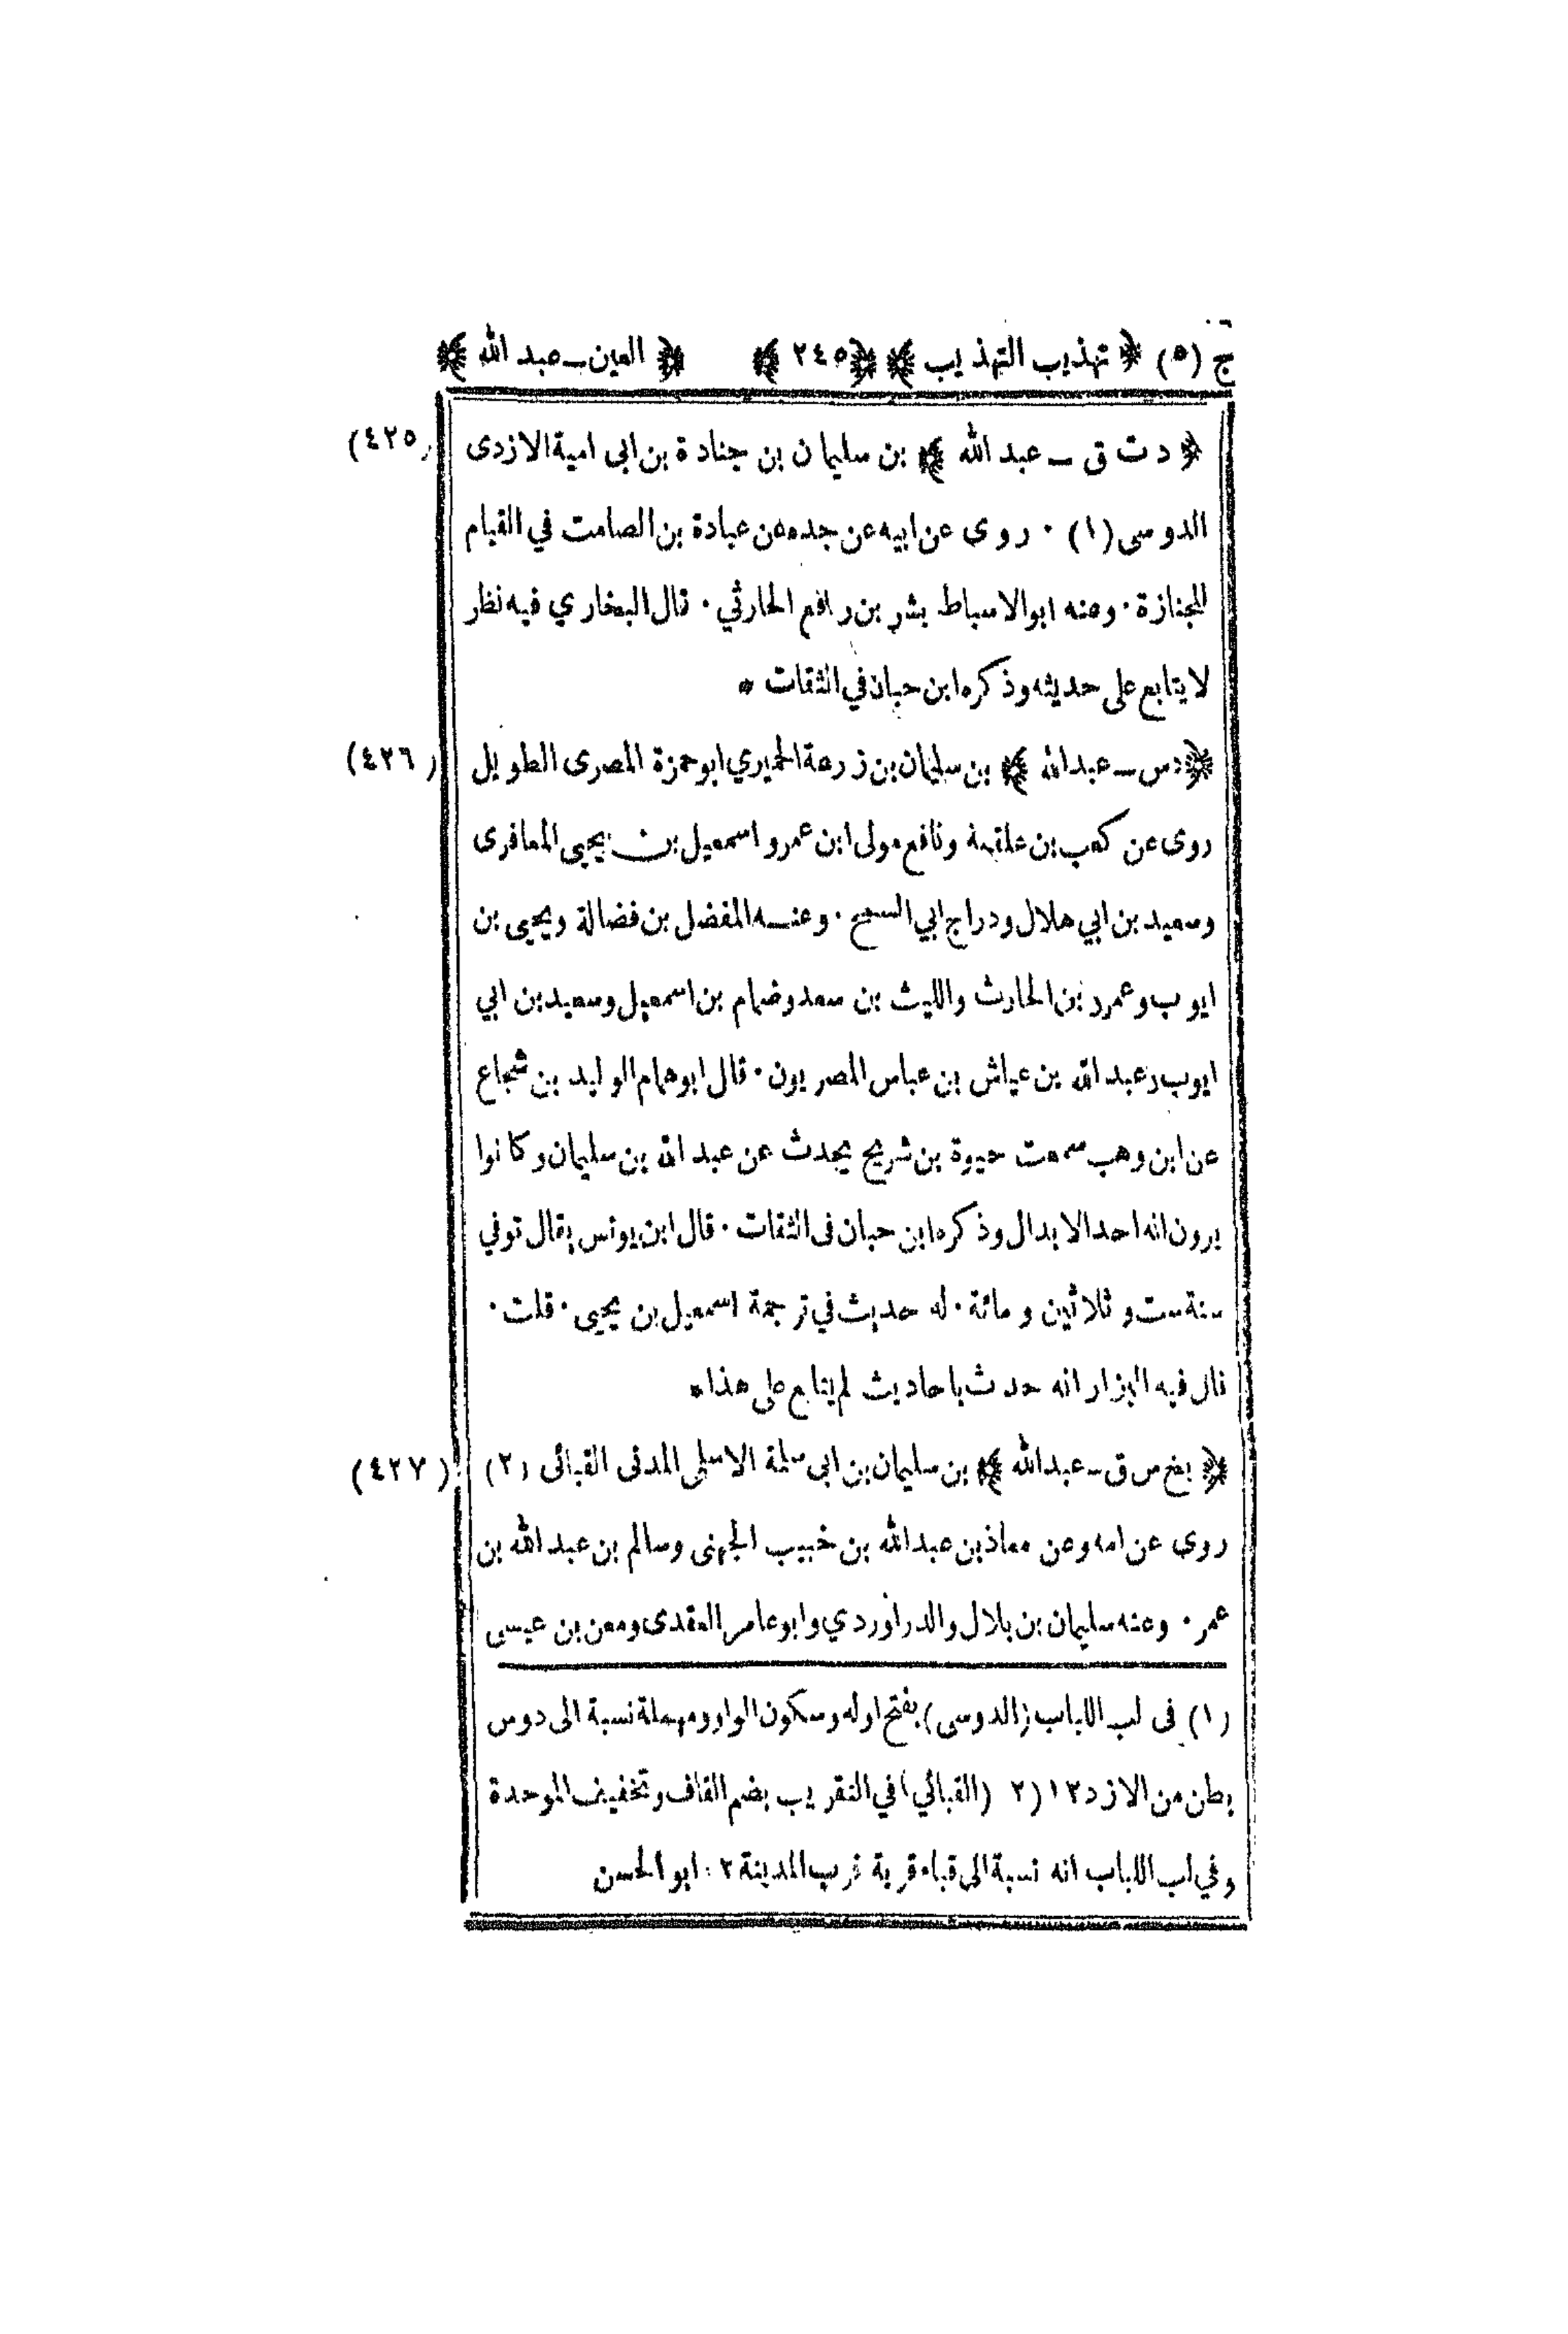 ج (٥) ﴿ تهذيب التهذيب ﴾ ﴿٢٤٥﴾ ﴿ العين ــ عبد الله ﴾
﴿ د ت ق ــ عبد الله ﴾ بن سليمان بن جنادة بن ابى امية الازدى (٤٢٥)
الدوسى (١) ٠ روى عن ابيه عن جده عن عبادة بن الصامت في القيام
للجنازة ٠ وعنه ابو الاسباط بشر بن رافع الحارثي ٠ قال البخاري فيه نظر
لا يتابع على حديثه وذكره ابن حبان في الثقات *
﴿ دس ــ عبدالله ﴾ بن سليمان بن زرعة الحميري ابو حمزة المصرى الطويل (٤٢٦)
روى عن كعب بن علقمة ونافع مولى ابن عمرو اسمعيل بن يحيى المعافرى
وسعيد بن ابي هلال ودراج ابي السمح ٠ وعنه المفضل بن فضالة ويحيى بن
ايوب وعمرو بن الحارث والليث بن سعد وضمام بن اسمعيل وسعيد بن ابي
ايوب وعبد الله بن عياش بن عباس المصريون ٠ قال ابو همام الوليد بن شجاع
عن ابن وهب سمعت حيوة بن شريح يحدث عن عبد الله بن سليمان وكانوا
يرون انه احد الابدال وذكره ابن حبان فى الثقات ٠ قال ابن يونس يقال توفي
سنة ست وثلاثين ومائة ٠ له حديث في ترجمة اسمعيل بن يحيى ٠ قلت ٠
قال فيه البزار انه حدث باحاديث لم يتابع على هذا *
﴿ بخ س ق ــ عبدالله ﴾ بن سليمان بن ابى سلمة الاسلمى المدنى القبائى (٢) (٤٢٧)
روى عن امه وعن معاذ بن عبدالله بن خبيب الجهنى وسالم بن عبد الله بن
عمر ٠ وعنه سليمان بن بلال والدراوردي وابو عامر العقدى ومعن بن عيسى
(١) فى لب اللباب (الدوسى) بفتح اوله وسكون الواو ومهملة نسبة الى دوس
بطن من الازد ١٢ (٢) (القبائي) في التقريب بضم القاف وتخفيف الموحدة
وفي لب اللباب انه نسبة الى قباء قرية قرب المدينة ١٢ ابو الحسن